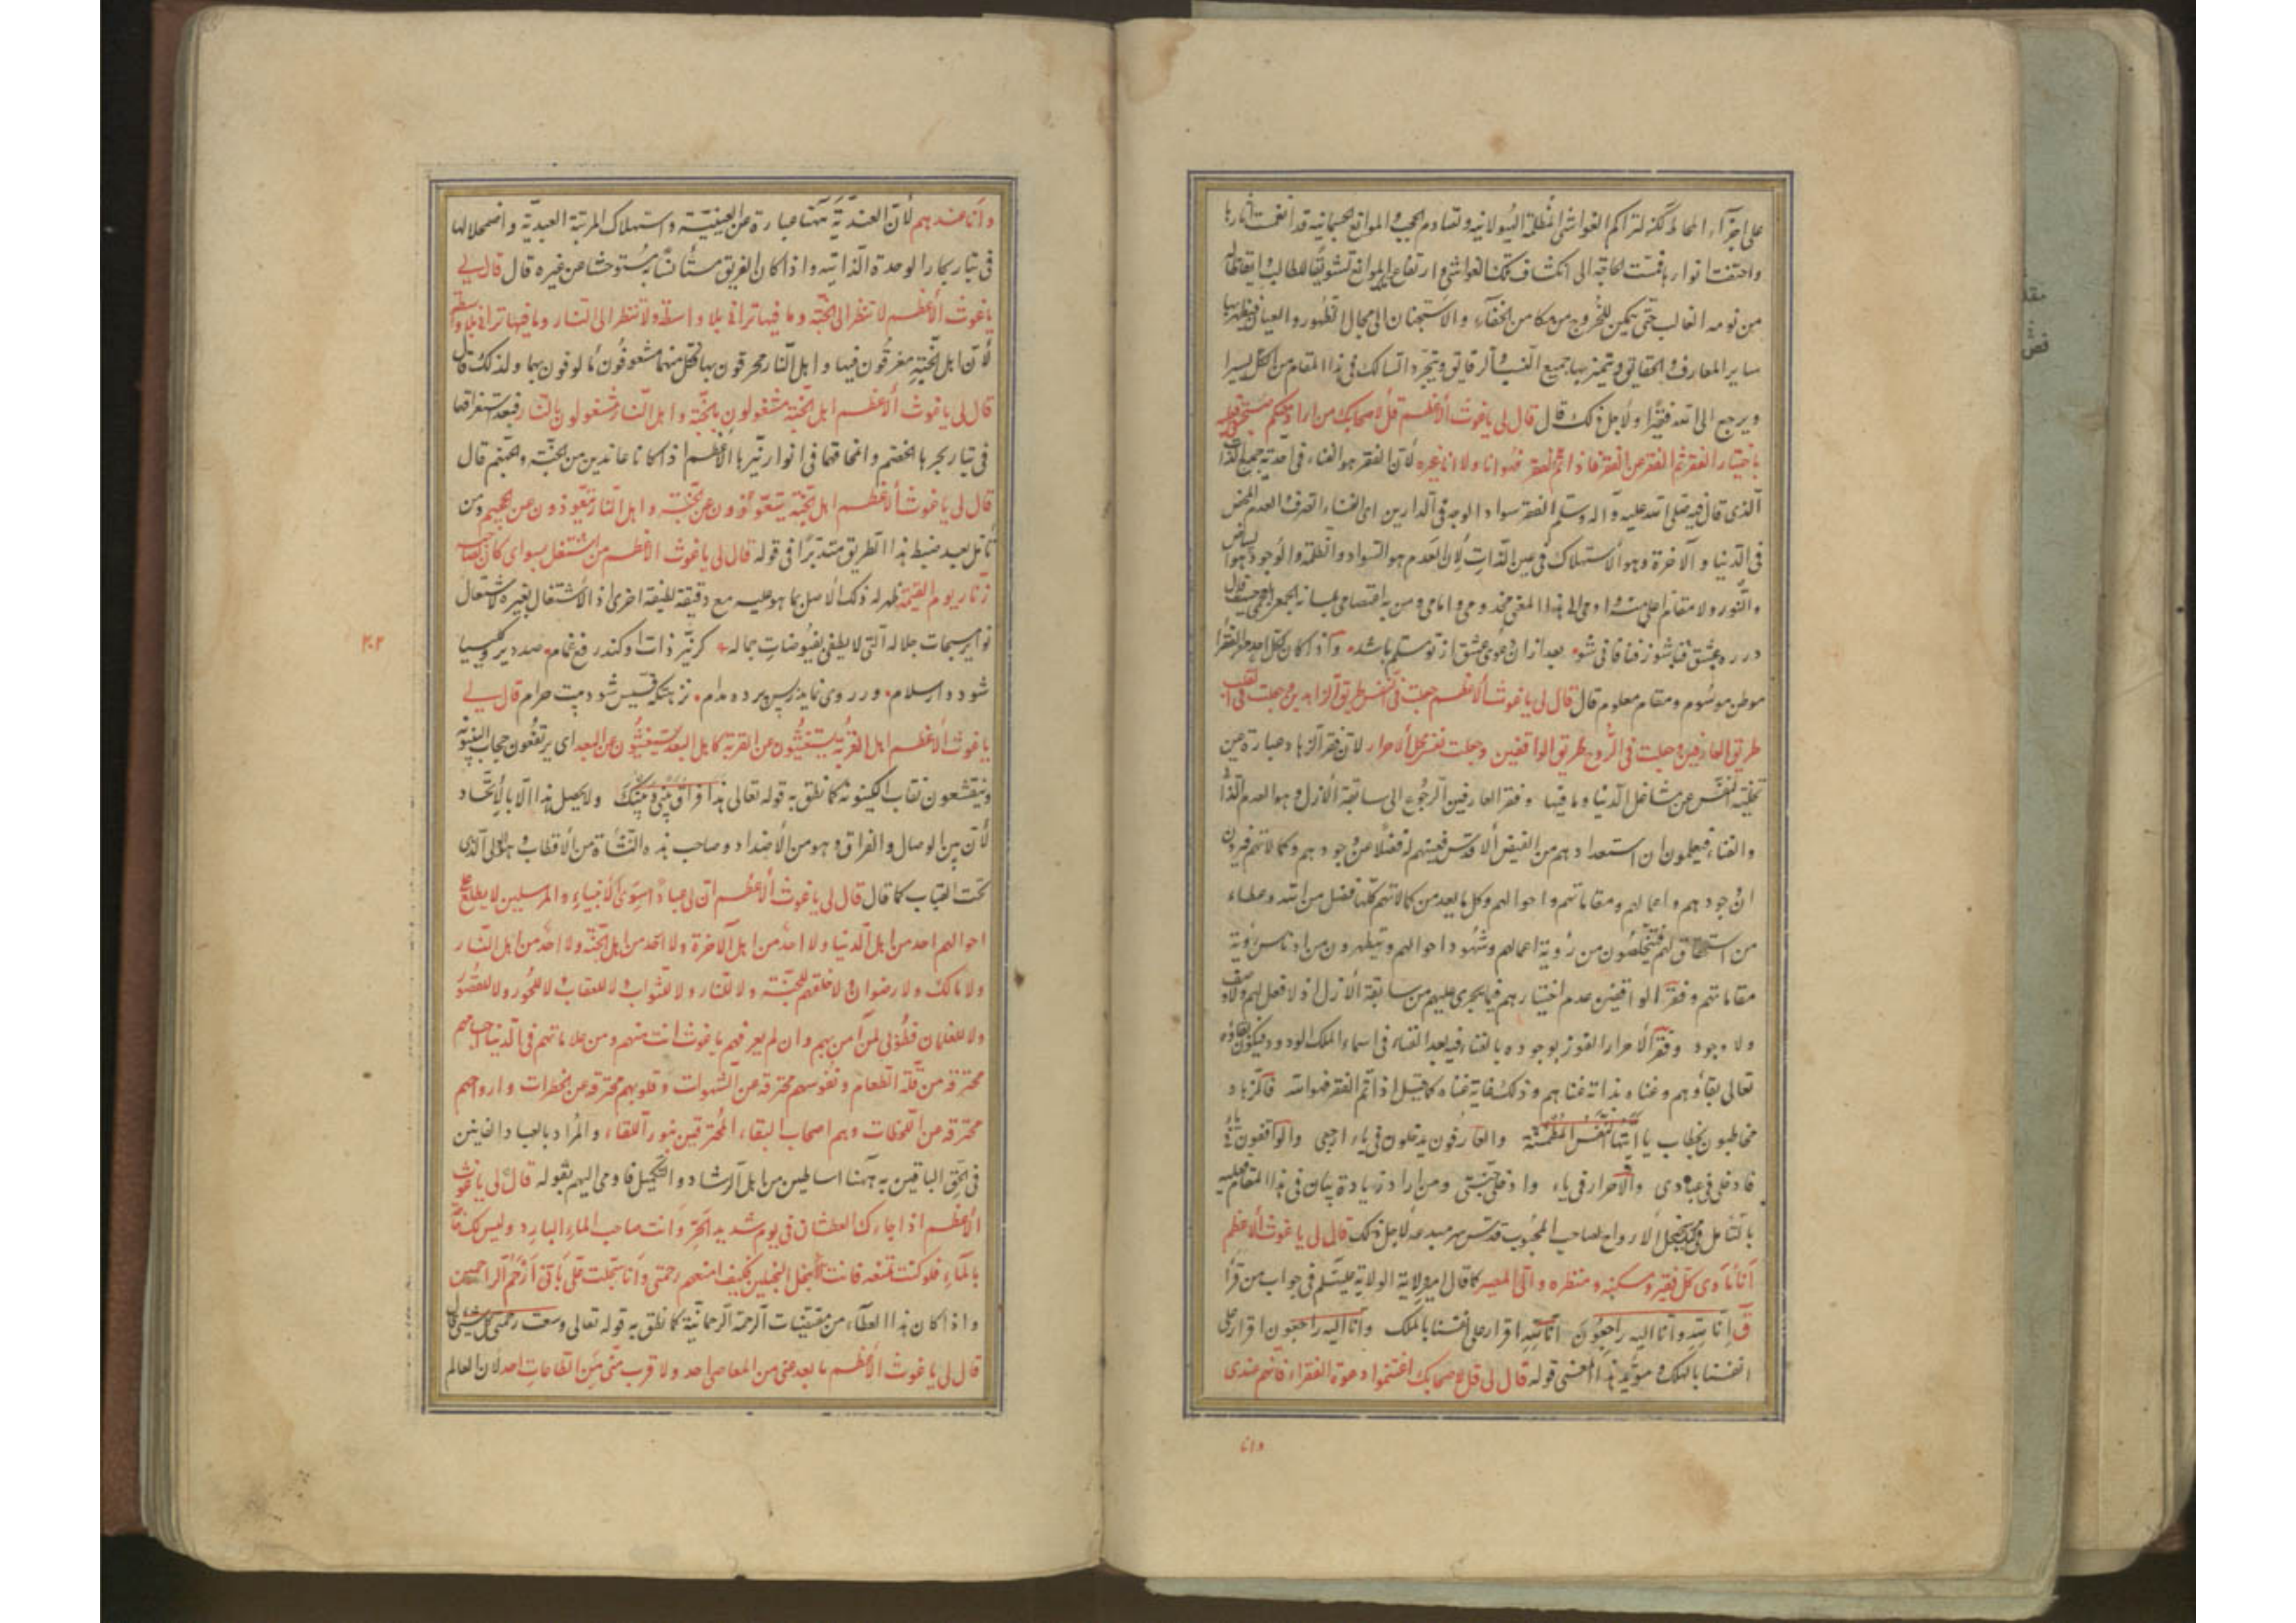 على اجزاء المحاط لكنه لتراكم الغواشى المظلمة الهيولانيه وتصادم الحجب والموانع الجسمانيه قد انغمت آثارها
واختفت انوارها فمست الحاجة الى انكشاف تلك الغواشى وارتفاع الموانع تشويقا للطالب وايقاظا
من نومه الغالب حتى يمكن للخروج من مكامن الخفاء والاستجنان الى مجال الظهور والعيان فيظهر بها
ساير المعارف والحقايق ويتميز بها جميع النسب والرقايق ويتجرد السالك فى هذا المقام من الكل يسيرا
ويرجع الى الله فقيرا ولاجل ذلك قال قال لى ياغوث الأعظم قل لاصحابك من اراد منكم صحبتى فعليه
باختيار الفقر ثم الفقر عن الفقر فاذا تم الفقر فهو انا ولا انا غيره لأن الفقر هو الفناء فى احدية جميع الذات
الذى قال فيه صلى الله عليه وآله وسلم الفقر سواد الوجه فى الدارين اى الفناء الصرف والعدم المحض
فى الدنيا والآخرة وهو الاستهلاك فى عين الذات لأن العدم هو السواد والظلمة والوجود هو البياض
والنور ولا مقام اعلى منه واومى الى هذا المعنى مخدومى وامامى ومن به اعتصامى بلسانه الجمعى حيث قال
در ره عشق فنا شو ز فنا فانى شو بعد ازان دعوى عشق از تو مسلم باشد واذا كان لكل احد من الفقرا
موطن موسوم ومقام معلوم قال قال لى ياغوث الأعظم جعلت فى النفس طريق الزاهدين وجعلت فى القلب
طريق العارفين وجعلت فى الروح طريق الواقفين وجعلت نفسى محل الأحرار لان فقر الزهاد عبارة عن
تخلية النفس عن مشاغل الدنيا وما فيها وفقر العارفين الرجوع الى سابقة الأزل وهو العدم
والفناء فيعلمون ان استعدادهم من الفيض الاقدس فضلا عن وجودهم وكمالاتهم فيرون
ان وجودهم واعمالهم ومقاماتهم واحوالهم وكل ما يعد من كمالاتهم كلها فضل من الله وعطاء
من استحقاق لهم فيتخلصون من رؤية اعمالهم وشهود احوالهم ويتطهرون من ادناس رؤية
مقاماتهم وفقر الواقفين عدم اختيارهم فيما يجرى عليهم من سابقة الأزل اذ لا فعل لهم ولا وصف
ولا وجود وفقر الأحرار الفوز بوجوده بالفناء فيه بعد الفناء فى اسماء الملك الودود فيكون بقاؤه
تعالى بقاؤهم وغناه بذاته غناهم وذلك غاية غناه كما قيل اذا تم الفقر فهو الله فالزهاد
مخاطبون بخطاب يا ايتها النفس المطمئنة والعارفون يدخلون فى ياء ارجعى والواقفون فى ياء
فادخلى فى عبادى والأحرار فى ياء وادخلى جنتى ومن اراد زيادة بيان فى هذا المقام فعليه
بالتأمل فى سجنجل الارواح لصاحب المحبوب قدس سره لاجل ذلك قال لى ياغوث الأعظم
انا مأوى كل فقير ومسكنه ومنظره والى المصير كما قال امير ولاية الولاية عليه السلم فى جواب من قرأ
ق انا لله وانا اليه راجعون انا لله اقرار على انفسنا بالملك وانا اليه راجعون اقرار على
انفسنا بالهلك ومؤيد هذا المعنى قوله قال لى قل لاصحابك اغتنموا دعوة الفقراء فانهم عندى
وانا
وانا عندهم لأن العندية ههنا عبارة عن العينية واستهلاك المرتبة العبدية واضمحلالها
فى تيار بحار الوحدة الذاتيه واذا كان الغريق مستأنسا به مستوحشا عن غيره قال قال لى
ياغوث الأعظم لا تنظر الى الجنة وما فيها ترانى بلا واسطة ولا تنظر الى النار وما فيها ترانى بلا واسطة
لأن اهل الجنة مغرقون فيها واهل النار محرقون بها فكل منهما مشعوفون مألوفون بهما ولذلك قال
قال لى ياغوث الأعظم اهل الجنة مشغولون بالجنة واهل النار مشغولون بالنار فبعد استغراقها
فى تيار بحرها الخضم وانمحاقها فى انوار نيرها الأعظم اذا كانا عائذين من الجنة والجهنم قال
قال لى ياغوث الأعظم اهل الجنة يتعوذون عن الجنة واهل النار يتعوذون عن الجحيم ومن
تأمل بعد ضبط هذا الطريق متدبرا فى قوله قال لى ياغوث الاعظم من اشتغل بسواى كان لصاحبه
زنار يوم القيمة ظهر له ذلك الأصل بما هو عليه مع دقيقة لطيفة اخرى اذ الاشتغال بغيره لاشتعال
٣٠٢
نوائر سبحات جلاله التى لا يطفى بفيوضات جماله گر نير ذات او كند رفع غمام صد دير و كليسيا
شود دار اسلام ور روى نمايد ز پس پرده مدام نزهتكه قسيس شود بيت حرام قال لى
ياغوث الأعظم اهل القربة يستغيثون عن القربة كاهل البعد يستغيثون عن البعد اى يرتفعون حجاب البينونة
وينقشعون نقاب الكينونة كما نطق به قوله تعالى هذا فراق بينى وبينك ولا يحصل هذا الا بالاتحاد
لأن بين الوصال والفراق وهو من الأضداد وصاحب هذه النشأة من الأقطاب والاولياء الذى
تحت القباب كما قال قال لى ياغوث الأعظم ان لى عبادا سوى الأنبياء والمرسلين لا يطلع على
احوالهم احد من اهل الدنيا ولا احد من اهل الآخرة ولا احد من اهل الجنة ولا احد من اهل النار
ولا مالك ولا رضوان لا خلقتهم للجنة ولا للنار ولا للثواب ولا للعقاب ولا للحور ولا للقصور
ولا للغلمان فطوبى لمن آمن بهم وان لم يعرفهم ياغوث انت منهم ومن علاماتهم فى الدنيا اجسامهم
محترقة من قلة الطعام ونفوسهم محترقة عن الشهوات وقلوبهم محترقة عن الخطرات وارواحهم
محترقة من اللحظات وهم اصحاب البقاء المحترقين بنور اللقاء والمراد بالعباد الفانين
فى الحق الباقين به ههنا اساطين من اهل الرشاد والتكميل فاومى اليهم بقوله قال لى ياغوث
الأعظم اذا جاءك العطشان فى يوم شديد الحر وانت صاحب الماء البارد وليس لك حاجة
بالماء فلو كنت تمنعه فانت ابخل البخيلين فكيف امنعهم رحمتى وانا سجلت على بانى ارحم الراحمين
واذا كان هذا العطاء من مقتضيات الرحمة الرحمانية كما نطق به قوله تعالى وسعت رحمتى كل شىء قال
قال لى ياغوث الأعظم ما بعد عنى من المعاصى احد ولا قرب منى من الطاعات احد لأن العالم